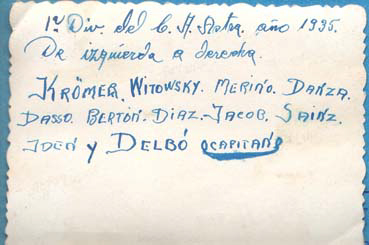 1ª Div. del C. A. Astra. año 1935.
De izquierda a derecha.
KRÖMER. WITOWSKY. MERIÑO. DANZA.
DASSO. BERTÓN. DIAZ. JACOB. SAINZ.
IDEN y DELBÓ CAPITAN